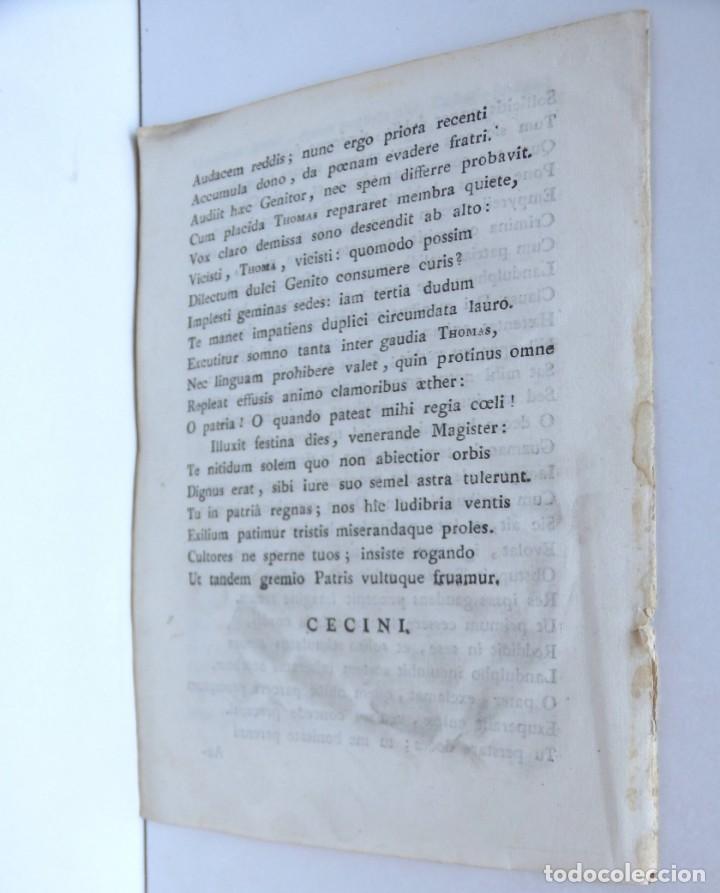 Audacem reddis; nunc ergo priora recenti
Accumula dono, da pœnam evadere fratri.
Audiit hæc Genitor, nec spem differre probavit.
Cum placida THOMAS repararet membra quiete,
Vox claro demissa sono descendit ab alto:
Vicisti, THOMA, vicisti: quomodo possim
Dilectum dulci Genito consumere curis?
Implesti geminas sedes: iam tertia dudum
Te manet impatiens duplici circumdata lauro.
Excutitur somno tanta inter gaudia THOMAS,
Nec linguam prohibere valet, quin protinus omne
Repleat effusis animo clamoribus æther:
O patria! O quando pateat mihi regia cœli!
Illuxit festina dies, venerande Magister:
Te nitidum solem quo non abiectior orbis
Dignus erat, sibi iure suo semel astra tulerunt.
Tu in patriâ regnas; nos hîc ludibria ventis
Exilium patimur tristis miserandaque proles.
Cultores ne sperne tuos; insiste rogando
Ut tandem gremio Patris vultuque fruamur.
CECINI.
todocoleccion